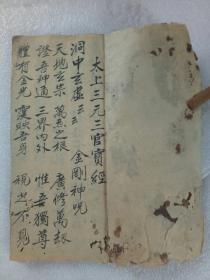 太上三元三官寶經
洞中玄虛 金剛神咒
天地玄宗 萬炁之根 廣修萬劫
證吾神通 三界內外 惟吾獨尊
體有金光 覆映吾身 視之不見